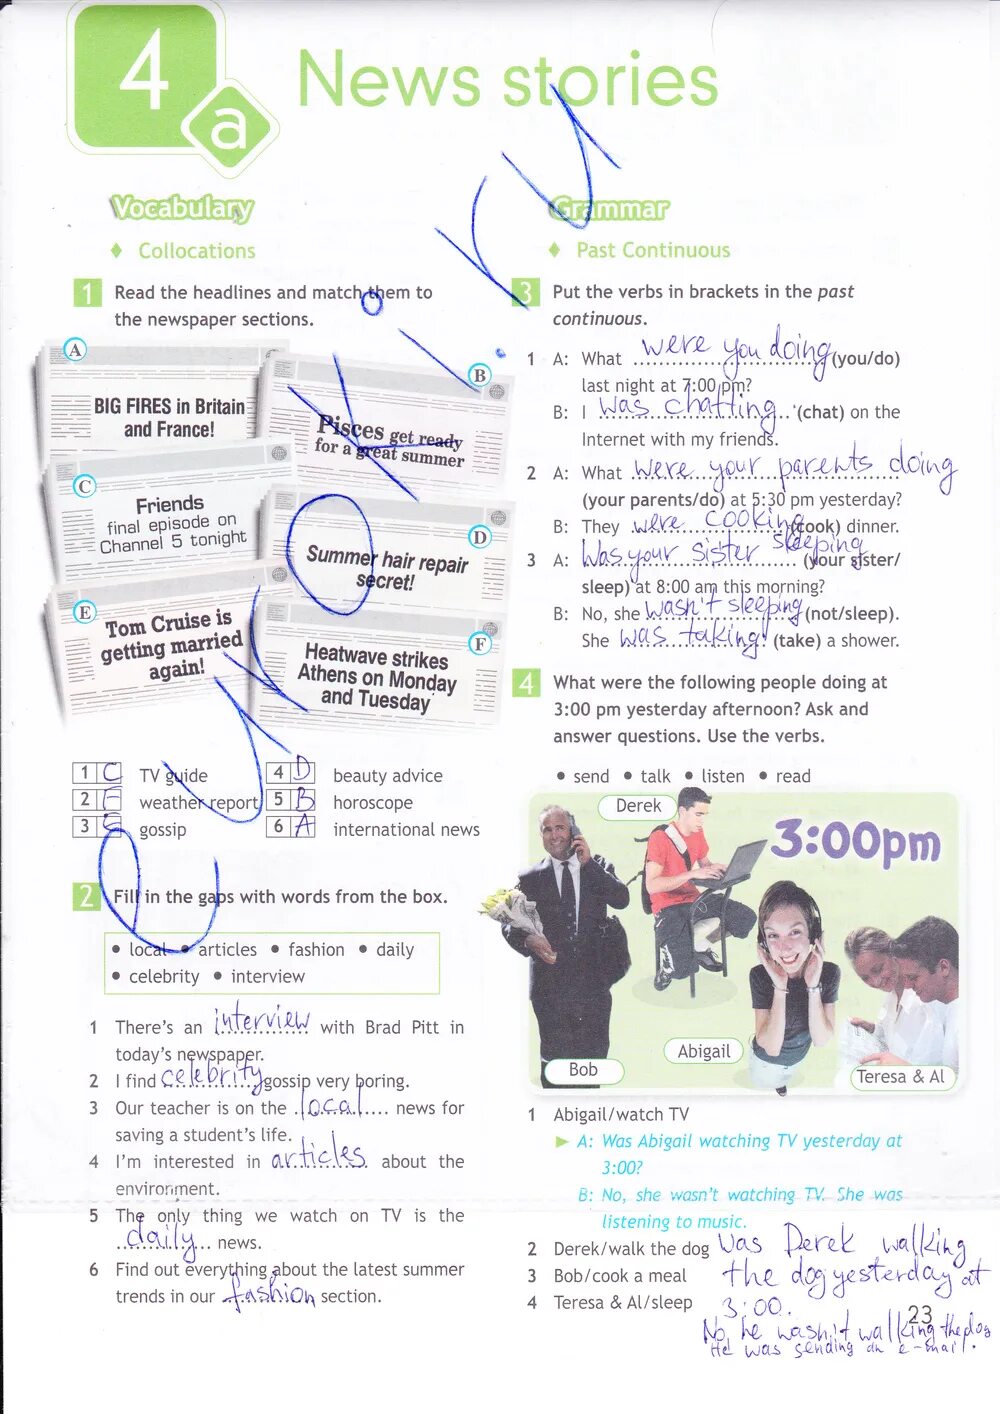 4
a
News stories
Vocabulary
♦ Collocations
1 Read the headlines and match them to
the newspaper sections.
A
BIG FIRES in Britain
and France!
B
Pisces get ready
for a great summer
C
Friends
final episode on
Channel 5 tonight
D
Summer hair repair
secret!
E
Tom Cruise is
getting married
again!
F
Heatwave strikes
Athens on Monday
and Tuesday
1 C TV guide
2 F weather report
3 E gossip
4 D beauty advice
5 B horoscope
6 A international news
2 Fill in the gaps with words from the box.
• local • articles • fashion • daily
• celebrity • interview
1 There's an interview with Brad Pitt in
today's newspaper.
2 I find celebrity gossip very boring.
3 Our teacher is on the local news for
saving a student's life.
4 I'm interested in articles about the
environment.
5 The only thing we watch on TV is the
daily news.
6 Find out everything about the latest summer
trends in our fashion section.
Grammar
♦ Past Continuous
3 Put the verbs in brackets in the past
continuous.
1 A: What were you doing (you/do)
last night at 7:00 pm?
B: I was chatting (chat) on the
Internet with my friends.
2 A: What were your parents doing
(your parents/do) at 5:30 pm yesterday?
B: They were cooking (cook) dinner.
3 A: Was your sister sleeping (your sister/
sleep) at 8:00 am this morning?
B: No, she wasn't sleeping (not/sleep).
She was taking (take) a shower.
4 What were the following people doing at
3:00 pm yesterday afternoon? Ask and
answer questions. Use the verbs.
• send • talk • listen • read
Derek
3:00pm
Abigail
Bob
Teresa & Al
1 Abigail/watch TV
► A: Was Abigail watching TV yesterday at
3:00?
B: No, she wasn't watching TV. She was
listening to music.
2 Derek/walk the dog Was Derek walking
3 Bob/cook a meal the dog yesterday at
4 Teresa & Al/sleep 3:00.
23
No, he wasn't walking the dog
He was sending an e-mail.
eurokl.ru